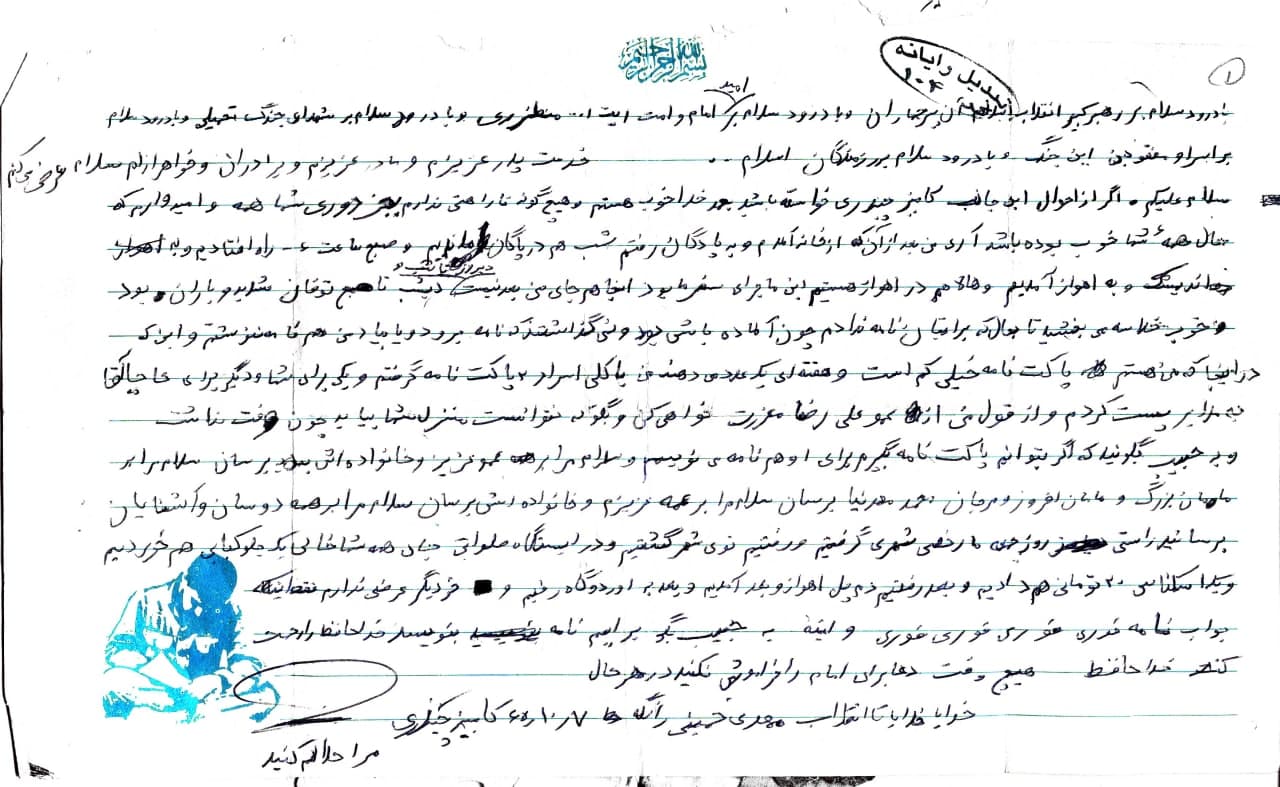 بسم الله الرحمن الرحیم
تبدیل رایانه
۱۰۴
۱
با درود سلام بر رهبر کبیر انقلاب جماران و با درود سلام بر امید امام و امت ایت ا... منتظری و با درود سلام بر شهدای جنگ تحمیلی و با درود سلام
بر اسرا و مفقودین این جنگ و با درود سلام بر رزمندگان اسلام .. خدمت پدر عزیزم و مادر عزیزم و برادران و خواهرانم سلام عرض می کنم
سلام علیکم . اگر از احوال این جانب کامبیز چیذری خواسته باشد بحمد خدا خوب هستم و هیچ گونه ناراحتی ندارم بجز دوری شما همه و امیدوارم که
حال همهٔ شما خوب بوده باشد آری من بعد از آن که از خانه آمدم و به پادگان رفتم شب هم در پادگان ماندیم و صبح ساعت ۶ راه افتادیم و به
و به اهواز آمدیم و حالا هم در اهواز هستیم این ماجرای سفر ما بود اینجا هم جای من بد نیست دیروز تا شب و دیشب تا صبح توفان شدید و باران بود
خوب خلاصه می بخشید تا بحال که برایتان نامه ندادم چون آماده باش بود و نمی گذاشتند که نامه برود و یا بیاد من هم نامه ننوشتم و این که
در اینجا که من هستم پاکت نامه خیلی کم است و هفته ای یک عدد می دهند من با کلی اسرار ۲ پاکت نامه گرفتم و یکی برای شما و دیگری برای حاجی
پست کردم و از قول من از عمو علی رضا معزرت خواهی کن و بگو که نتوانست منزل شما بیاید چون وقت نداشت
و به حبیب بگوئید که اگر بتوانم پاکت نامه بگیرم برای او هم نامه می نویسم و سلام مرا به عمو عزیز و خانواده اش برسان سلام مرا به
مامان بزرگ و مامان افروز و مرجان محمد مهدنیا برسان سلام مرا بر عمه عزیزم و خانواده اش برسان سلام مرا به همه دوستان و آشنایان
برسانید راستی روز جمعه مرخصی شهری گرفتیم و رفتیم توی شهر گشتیم و در ایستگاه صلواتی جای همه شما خالی یک چلوکبابی هم خوردیم
و یک اسکناس ۲۰ تومانی هم دادیم و بعد رفتیم دم پل اهواز و بعد آمدیم و بعد به اردوگاه رفتیم و دیگر عرضی ندارم فقط اینکه
جواب نامه فوری فوری فوری فوری و البته به حبیب بگو برایم نامه بنویسد خداحافظ زاحمت
خدا حافظ هیچ وقت دعا برای امام را فراموش نکنید در هر حال
خدایا خدایا تا انقلاب مهدی خمینی را نگه دار ۶۵،۱۰،۷ کامبیز چیذری
مرا حلال کنید